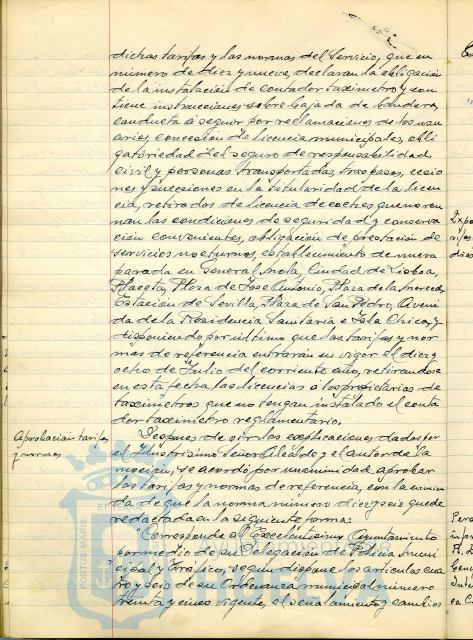 dichas tarifas y las normas del Servicio, que en
número de diez y nueve, declaran la obligación
de la instalación de contador taxímetro y con
tiene instrucciones sobre bajada de bandera,
conducta a seguir por reclamaciones de los usu
arios, concesión de licencia municipales, obli
gatoriedad del seguro de responsabilidad
civil y personas transportadas, traspasos, cesio
nes y sucesiones en la titularidad de la licen
cia, retirados de licencia de coches que no reu
nan las condiciones de seguridad y conserva
ción convenientes, obligación de prestación de
servicios nocturnos, establecimiento de nueva
parada en General Mola, Ciudad de Lisboa,
Placeta, Plaza de Jose Antonio, Plaza de la Merced,
Estación de Sevilla, Plaza de San Pedro, Aveni
da de la Residencia Sanitaria e Isla Chica, y
disponiendo por último que las tarifas y nor
mas de referencia entrarán en vigor el diez y
ocho de Julio del corriente año, retirándose
en esta fecha las licencias a los propietarios de
taxímetros que no tengan instalado el conta
dor taxímetro reglamentario.
Aprobación tarifas
y normas
Después de oir las explicaciones dadas por
el Ilustrísimo Señor Alcalde y el autor de la
moción, se acordó por unanimidad aprobar
las tarifas y normas de referencia, con la enmien
da de que la norma número diez y seis quede
redactada en la siguiente forma:
Corresponde al Excelentísimo Ayuntamiento
por medio de su Delegación de Policía Muni
cipal y Tráfico, según dispone los artículos cua
tro y seis de su Ordenanza municipal número
treinta y cinco vigente, el señalamiento y cambios
PORTUS MARIS